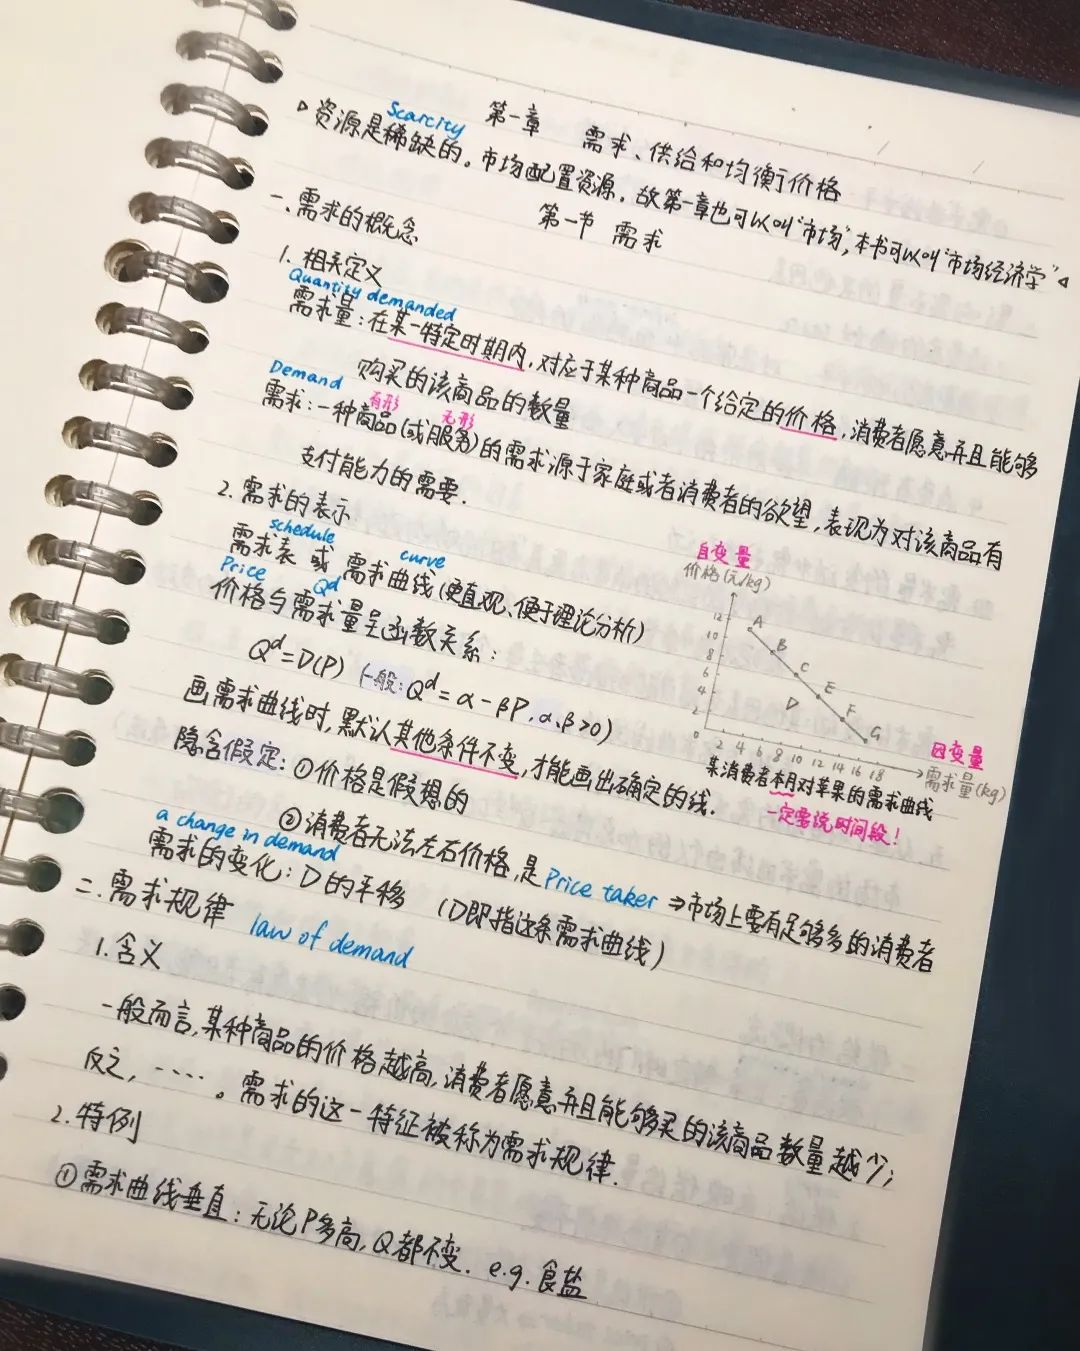 第一章 需求、供给和均衡价格
Scarcity
▷资源是稀缺的。市场配置资源,故第一章也可以叫"市场",本书可以叫"市场经济学"◁
第一节 需求
一、需求的概念
1. 相关定义
Quantity demanded
需求量:在某一特定时期内,对应于某种商品一个给定的价格,消费者愿意并且能够
购买的该商品的数量
Demand 有形 无形
需求:一种商品(或服务)的需求源于家庭或者消费者的欲望,表现为对该商品有
支付能力的需要.
2. 需求的表示
schedule curve
需求表 或 需求曲线(更直观、便于理论分析)
Price Qd
价格与需求量呈函数关系:
Qd=D(P) (一般:Qd=α-βP,α、β>0)
画需求曲线时,默认其他条件不变,才能画出确定的线.
隐含假定:①价格是假想的
②消费者无法左右价格,是Price taker⇒市场上要有足够多的消费者
a change in demand
需求的变化:D的平移 (D即指这条需求曲线)
自变量
价格(元/kg)
12
10
8
6
4
2
0 2 4 6 8 10 12 14 16 18
A
B
C
E
D
F
G
因变量
需求量(kg)
某消费者本月对苹果的需求曲线
一定要说时间段!
二.需求规律 law of demand
1.含义
一般而言,某种商品的价格越高,消费者愿意并且能够买的该商品数量越少;
反之,……。需求的这一特征被称为需求规律.
2.特例
①需求曲线垂直:无论P多高,Q都不变. e.g.食盐